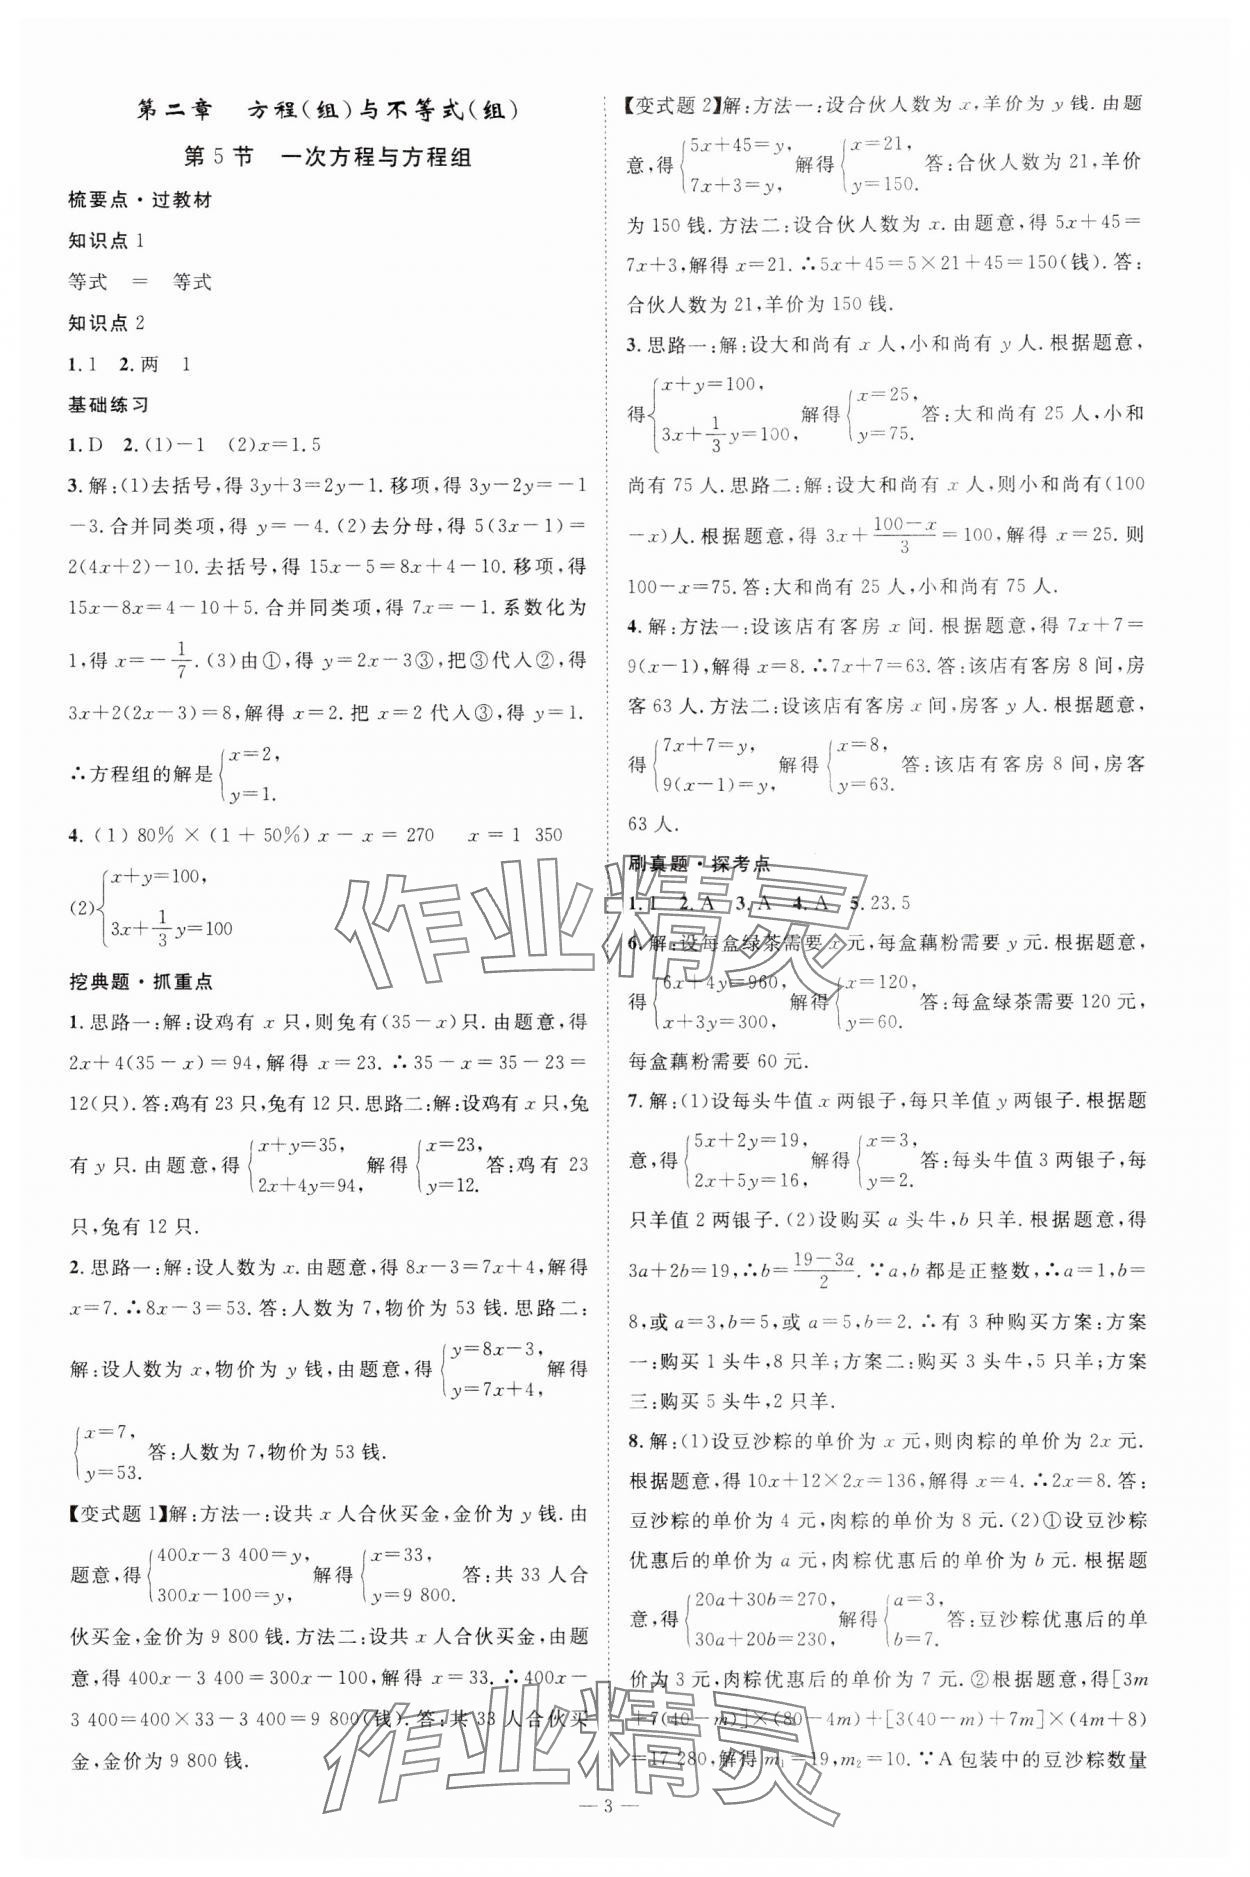 第二章　方程(组)与不等式(组)
第 5 节　一次方程与方程组
梳要点·过教材
知识点 1
等式　=　等式
知识点 2
1. 1　2. 两　1
基础练习
1. D　2. (1)-1　(2)x=1.5
3. 解:(1)去括号,得 3y+3=2y-1. 移项,得 3y-2y=-1
-3. 合并同类项,得 y=-4. (2)去分母,得 5(3x-1)=
2(4x+2)-10. 去括号,得 15x-5=8x+4-10. 移项,得
15x-8x=4-10+5. 合并同类项,得 7x=-1. 系数化为
1,得 x=-1/7. (3)由①,得 y=2x-3③,把③代入②,得
3x+2(2x-3)=8,解得 x=2. 把 x=2 代入③,得 y=1.
∴方程组的解是{x=2, y=1.
4. (1) 80% × (1+50%) x-x=270　x=1 350
(2){x+y=100, 3x+1/3y=100
挖典题·抓重点
1. 思路一:解:设鸡有 x 只,则兔有(35-x)只. 由题意,得
2x+4(35-x)=94,解得 x=23. ∴35-x=35-23=
12(只). 答:鸡有 23 只,兔有 12 只. 思路二:解:设鸡有 x 只,兔
有 y 只. 由题意,得{x+y=35, 2x+4y=94, 解得{x=23, y=12. 答:鸡有 23
只,兔有 12 只.
2. 思路一:解:设人数为 x. 由题意,得 8x-3=7x+4,解得
x=7. ∴8x-3=53. 答:人数为 7,物价为 53 钱. 思路二:
解:设人数为 x,物价为 y 钱,由题意,得{y=8x-3, y=7x+4, 解得
{x=7, y=53. 答:人数为 7,物价为 53 钱.
【变式题 1】解:方法一:设共 x 人合伙买金,金价为 y 钱. 由
题意,得{400x-3 400=y, 300x-100=y, 解得{x=33, y=9 800. 答:共 33 人合
伙买金,金价为 9 800 钱. 方法二:设共 x 人合伙买金,由题
意,得 400x-3 400=300x-100,解得 x=33. ∴400x-
3 400=400×33-3 400=9 800(钱). 答:共 33 人合伙买
金,金价为 9 800 钱.
【变式题 2】解:方法一:设合伙人数为 x,羊价为 y 钱. 由题
意,得{5x+45=y, 7x+3=y, 解得{x=21, y=150. 答:合伙人数为 21,羊价
为 150 钱. 方法二:设合伙人数为 x. 由题意,得 5x+45=
7x+3,解得 x=21. ∴5x+45=5×21+45=150(钱). 答:
合伙人数为 21,羊价为 150 钱.
3. 思路一:解:设大和尚有 x 人,小和尚有 y 人. 根据题意,
得{x+y=100, 3x+1/3y=100, 解得{x=25, y=75. 答:大和尚有 25 人,小和
尚有 75 人. 思路二:解:设大和尚有 x 人,则小和尚有(100
-x)人. 根据题意,得 3x+(100-x)/3=100,解得 x=25. 则
100-x=75. 答:大和尚有 25 人,小和尚有 75 人.
4. 解:方法一:设该店有客房 x 间. 根据题意,得 7x+7=
9(x-1),解得 x=8. ∴7x+7=63. 答:该店有客房 8 间,房
客 63 人. 方法二:设该店有客房 x 间,房客 y 人. 根据题意,
得{7x+7=y, 9(x-1)=y, 解得{x=8, y=63. 答:该店有客房 8 间,房客
63 人.
刷真题·探考点
1. 1　2. A　3. A　4. A　5. 23.5
6. 解:设每盒绿茶需要 x 元,每盒藕粉需要 y 元. 根据题意,
得{6x+4y=960, x+3y=300, 解得{x=120, y=60. 答:每盒绿茶需要 120 元,
每盒藕粉需要 60 元.
7. 解:(1)设每头牛值 x 两银子,每只羊值 y 两银子. 根据题
意,得{5x+2y=19, 2x+5y=16, 解得{x=3, y=2. 答:每头牛值 3 两银子,每
只羊值 2 两银子. (2)设购买 a 头牛,b 只羊. 根据题意,得
3a+2b=19,∴b=(19-3a)/2. ∵a,b 都是正整数,∴a=1,b=
8,或 a=3,b=5,或 a=5,b=2. ∴有 3 种购买方案:方案
一:购买 1 头牛,8 只羊;方案二:购买 3 头牛,5 只羊;方案
三:购买 5 头牛,2 只羊.
8. 解:(1)设豆沙粽的单价为 x 元,则肉粽的单价为 2x 元.
根据题意,得 10x+12×2x=136,解得 x=4. ∴2x=8. 答:
豆沙粽的单价为 4 元,肉粽的单价为 8 元. (2)①设豆沙粽
优惠后的单价为 a 元,肉粽优惠后的单价为 b 元. 根据题
意,得{20a+30b=270, 30a+20b=230, 解得{a=3, b=7. 答:豆沙粽优惠后的单
价为 3 元,肉粽优惠后的单价为 7 元. ②根据题意,得[3m
+7(40-m)]×(80-4m)+[3(40-m)+7m]×(4m+8)
=17 280,解得 m₁=19,m₂=10. ∵A 包装中的豆沙粽数量
— 3 —
作业精灵
作业精灵